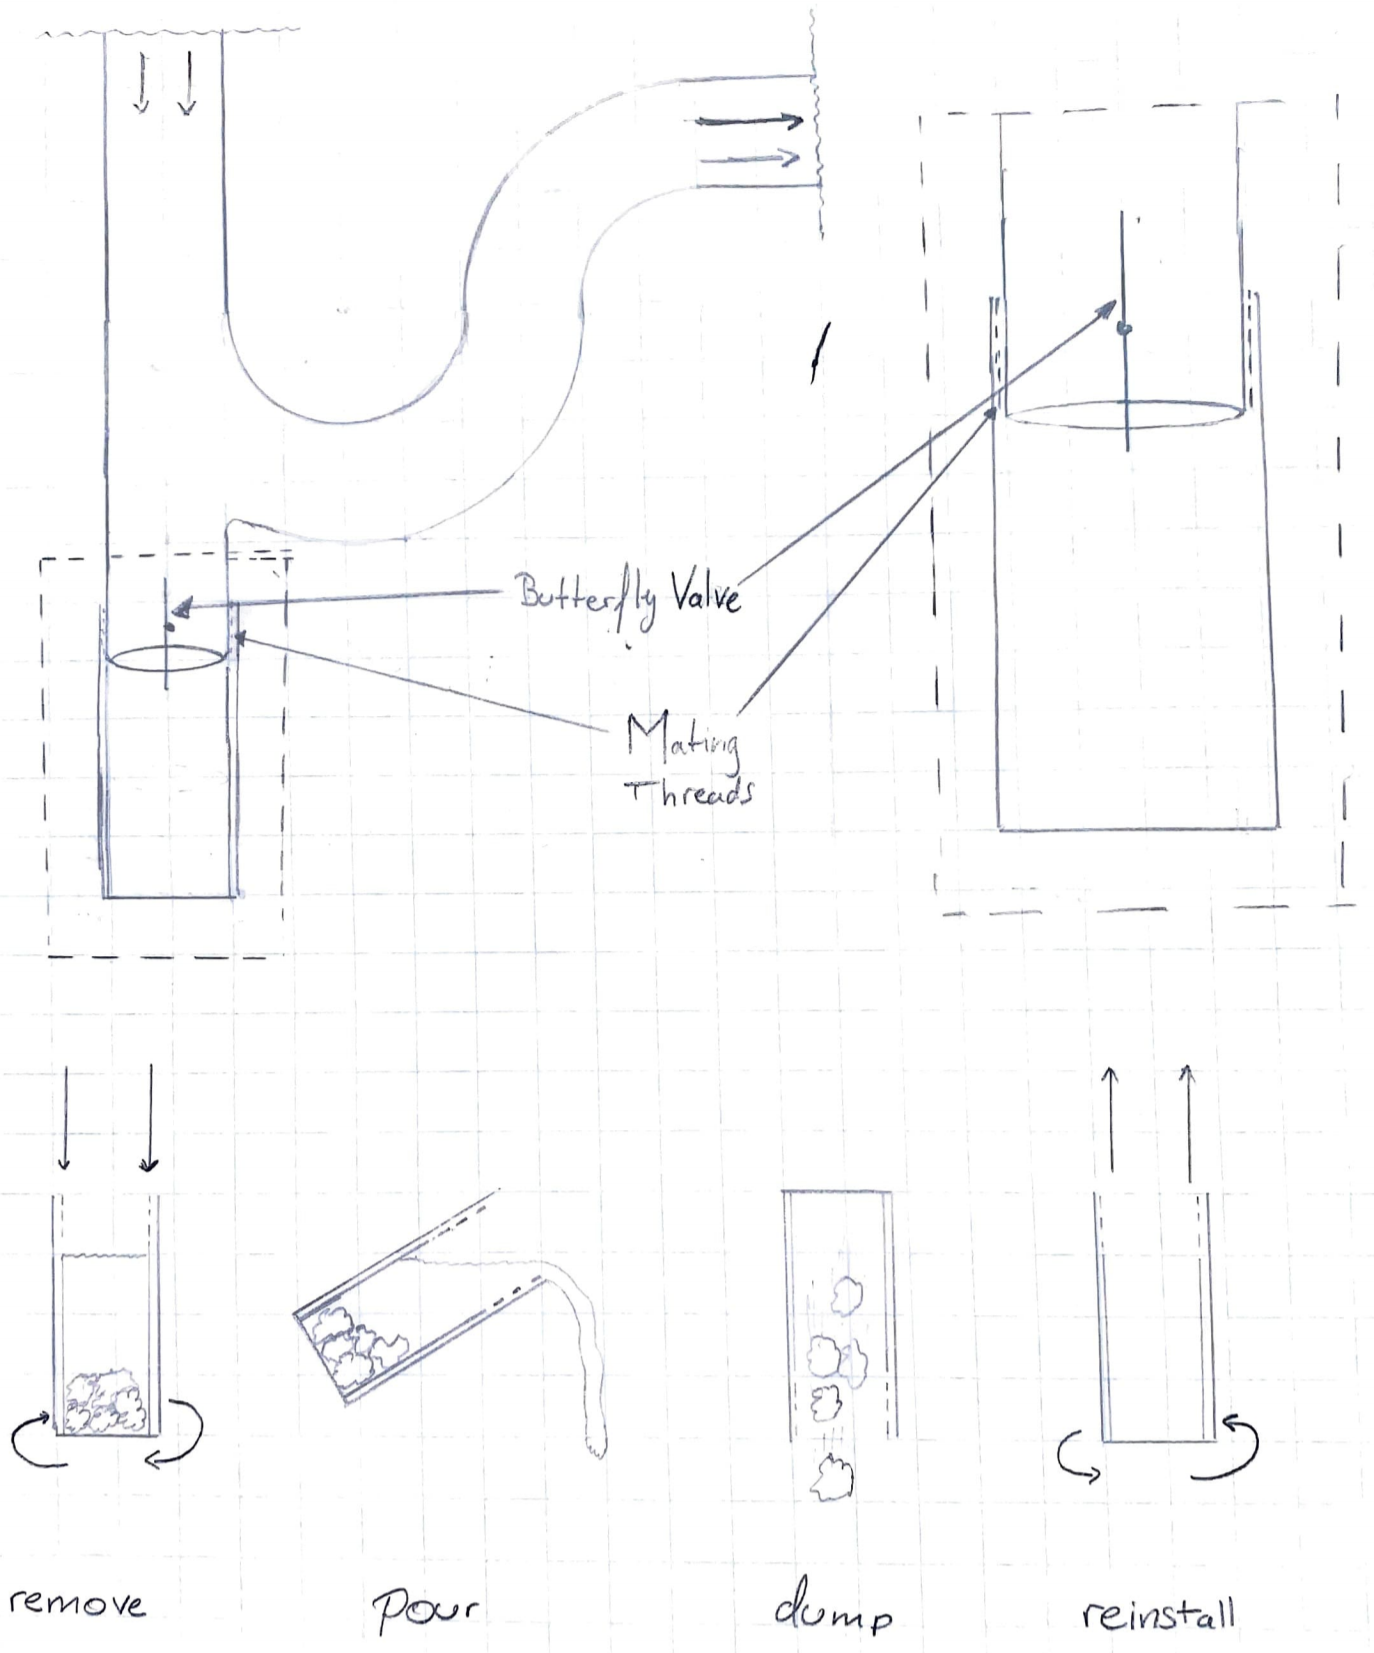 Butterfly Valve
Mating
Threads
remove
pour
dump
reinstall